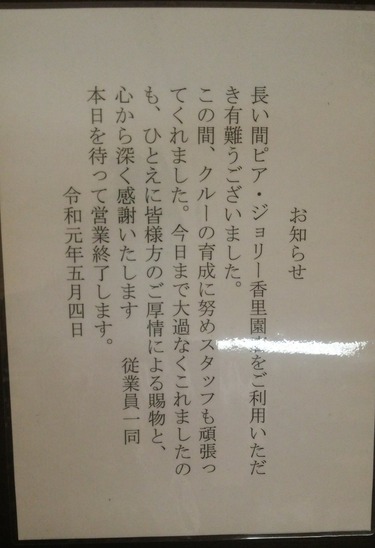 お知らせ
長い間ピア・ジョリー香里園をご利用いただ
き有難うございました。
この間、クルーの育成に努めスタッフも頑張っ
てくれました。今日まで大過なくこれましたの
も、ひとえに皆様方のご厚情による賜物と、
心から深く感謝いたします 従業員一同
本日を待って営業終了します。
令和元年五月四日